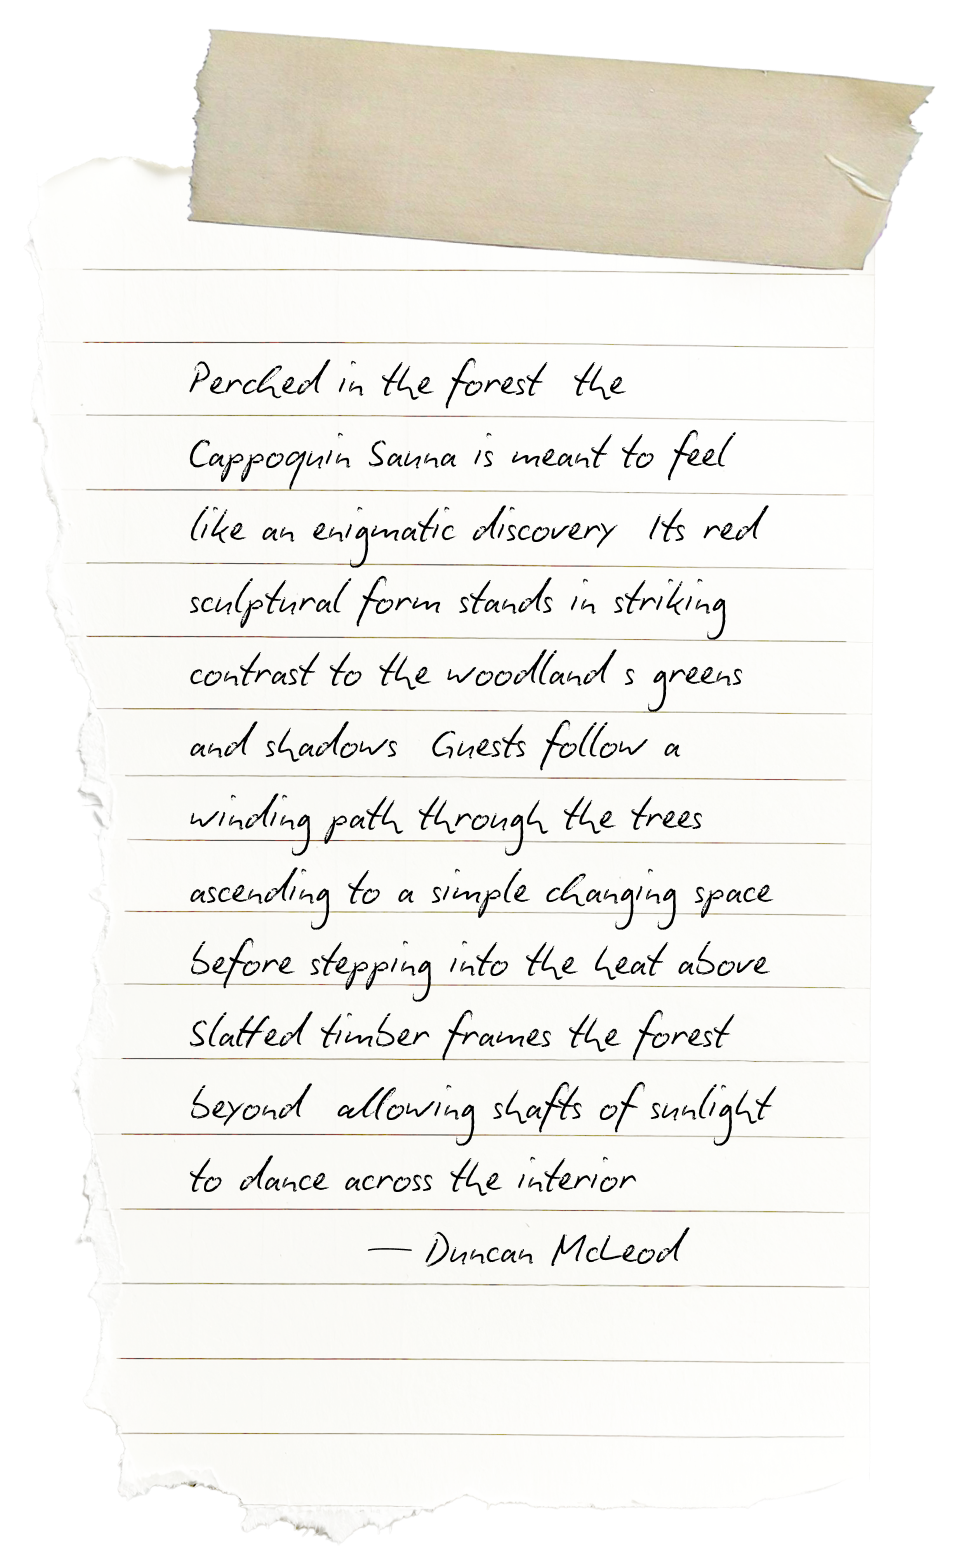 Perched in the forest the
Cappoquin Sauna is meant to feel
like an enigmatic discovery Its red
sculptural form stands in striking
contrast to the woodland s greens
and shadows Guests follow a
winding path through the trees
ascending to a simple changing space
before stepping into the heat above
Slatted timber frames the forest
beyond allowing shafts of sunlight
to dance across the interior
— Duncan McLeod